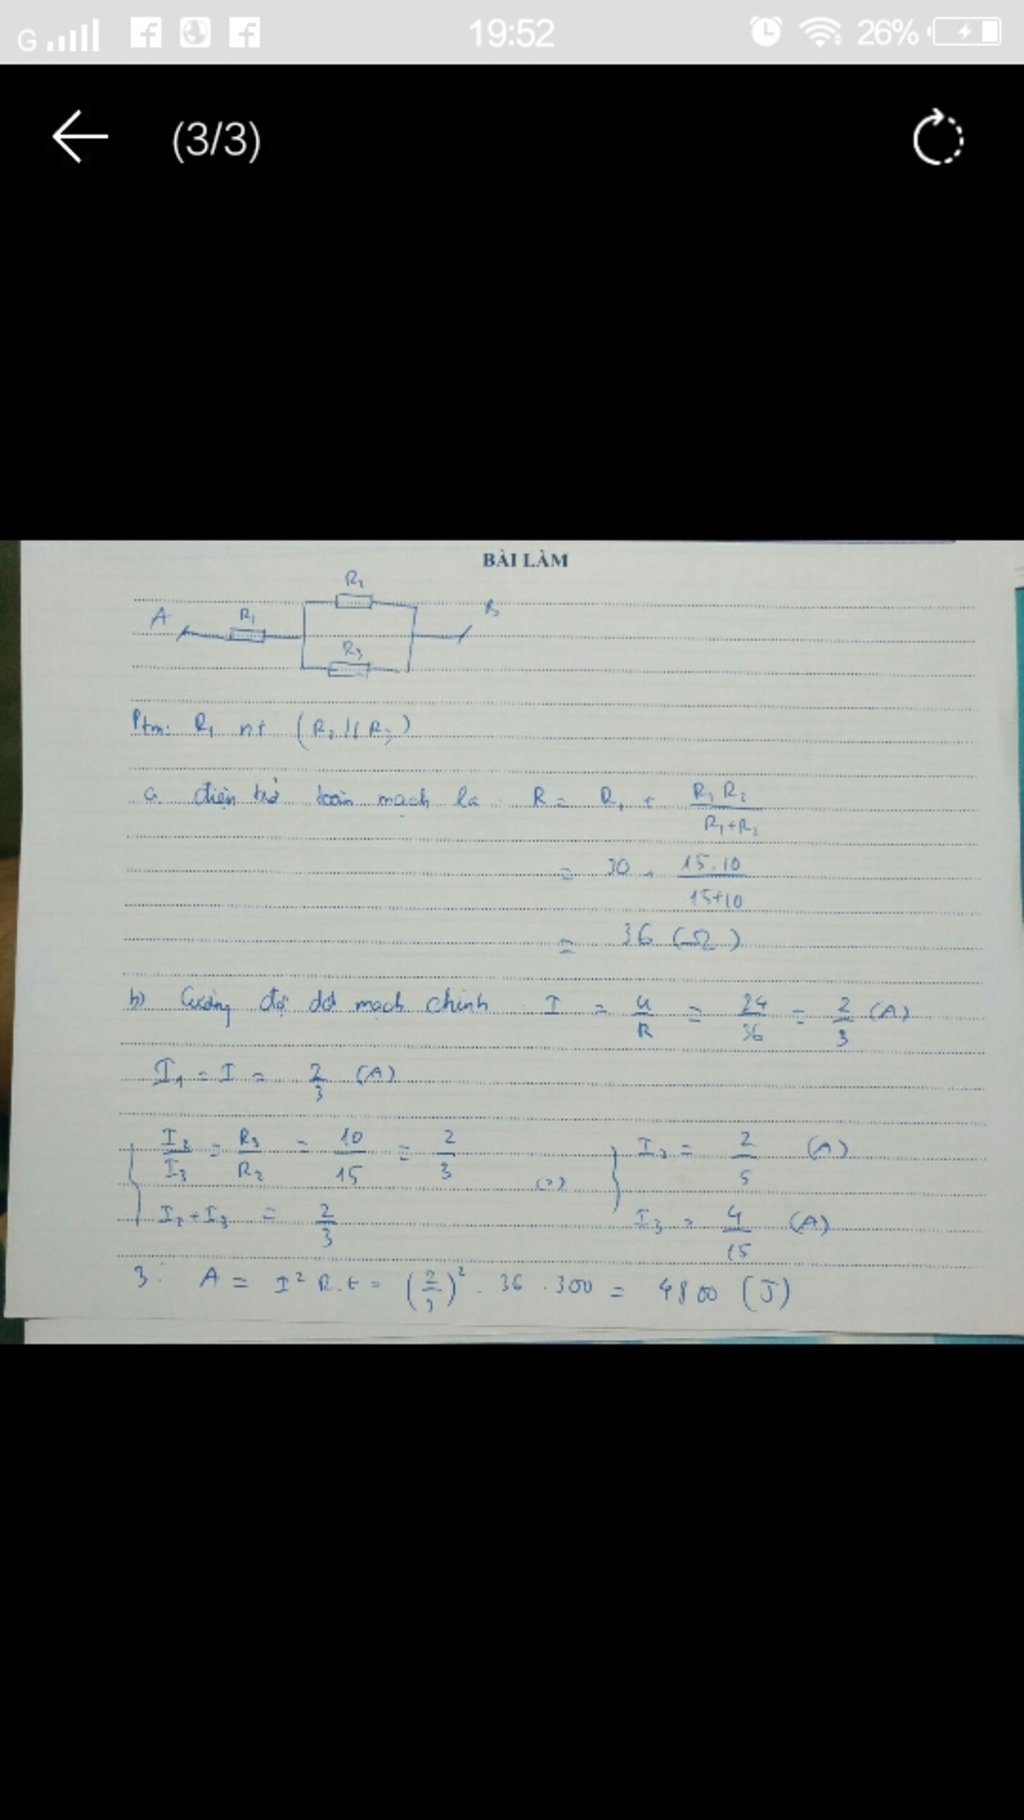 G 19:52 26%
(3/3)
BÀI LÀM
R₂
A R₁ B
R₃
Ptm: R₁ nt (R₂ // R₃)
a điện trở toàn mạch là R = R₁ + R₃ R₂ / R₃+R₂
= 30 + 15.10 / 15+10
= 36 (Ω)
b) Cường độ dđ mạch chính I = U/R = 24/36 = 2/3 (A)
I₁ = I = 2/3 (A)
I₂/I₃ = R₃/R₂ = 10/15 = 2/3
I₂+I₃ = 2/3
(=)
I₃ = 2/5 (A)
I₃ = 4/15 (A)
3: A = I² R.t = (2/3)² . 36 . 300 = 4800 (J)